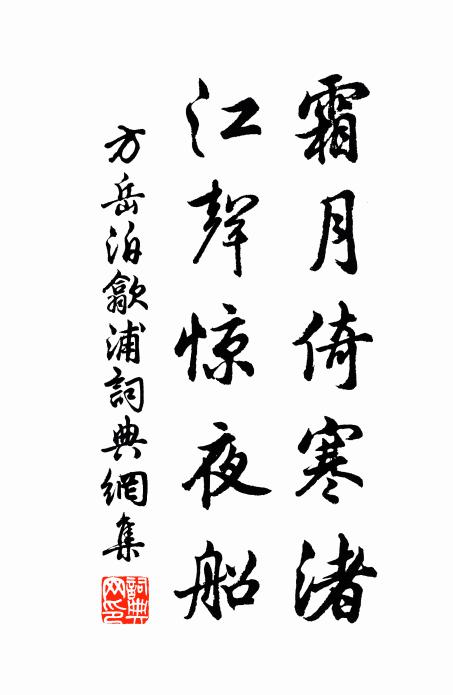 霜月倚寒渚
江聲惊夜船
方岳泊歙浦詞典網集
詞典網印